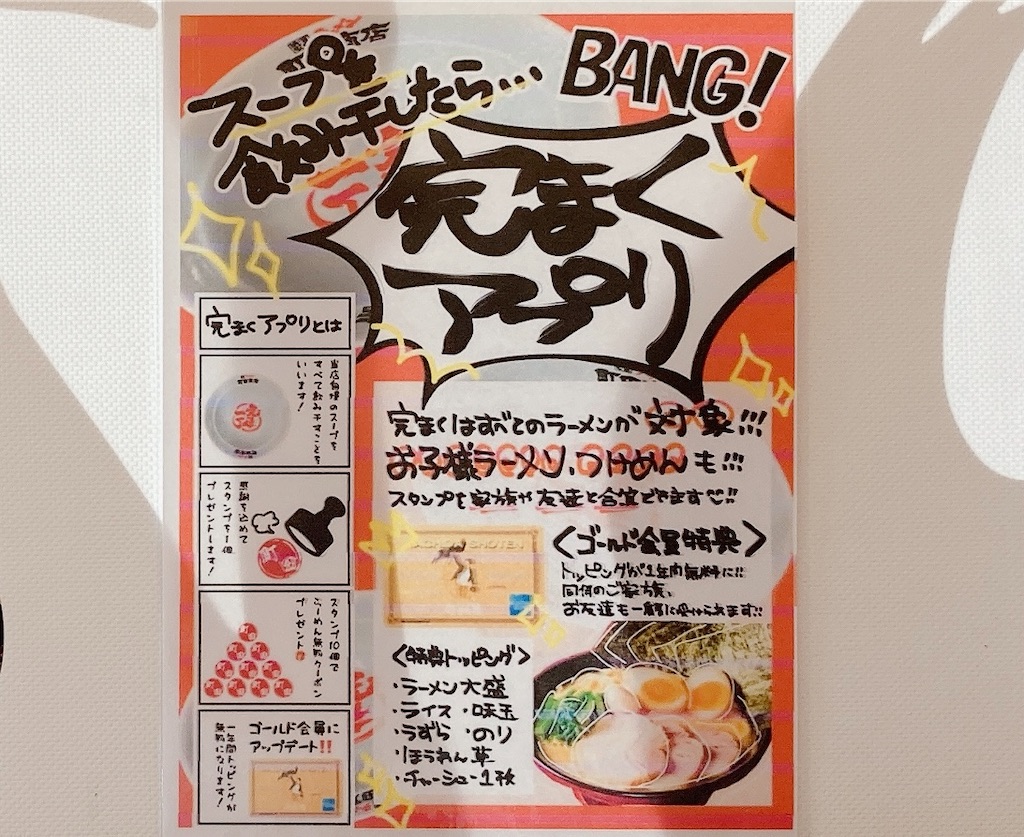 スープを
飲み干したら…
BANG!
完まく
アプリ
完まくアプリとは
当店自慢のスープを
すべて飲み干すことを
いいます!
感謝を込めて
スタンプを1個
プレゼントします!
スタンプ10個で
らーめん無料クーポン
プレゼント
ゴールド会員に
アップデート!!
一年間トッピングが
無料になります!
完まくはすべてのラーメンが対象!!!
お子様ラーメン、つけめんも!!!
スタンプを家族や友達と合算できます♡!!
<ゴールド会員特典>
トッピングが1年間無料に!!
同伴のご家族、
お友達も一緒に受けられます!!
<特典トッピング>
・ラーメン大盛
・ライス ・味玉
・うずら ・のり
・ほうれん草
・チャーシュー1枚